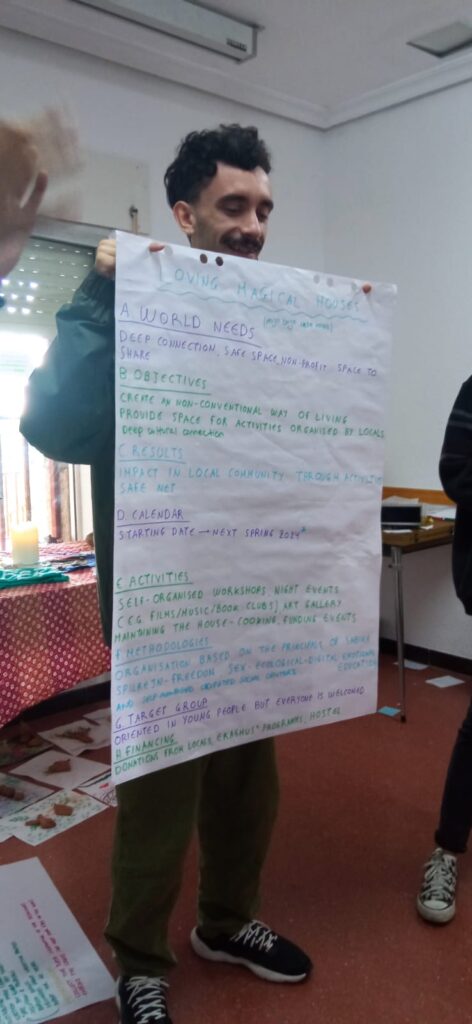 LOVING MAGICAL HOUSES
A. WORLD NEEDS
DEEP CONNECTION, SAFE SPACE, NON-PROFIT SPACE TO
SHARE
B. OBJECTIVES
CREATE AN NON-CONVENTIONAL WAY OF LIVING
PROVIDE SPACE FOR ACTIVITIES ORGANISED BY LOCALS
Deep cultural connection
C. RESULTS
IMPACT IN LOCAL COMMUNITY THROUGH ACTIVITIES
SAFE NET
D. CALENDAR
STARTING DATE → NEXT SPRING 2024
E. ACTIVITIES
SELF-ORGANISED WORKSHOPS, NIGHT EVENTS
(E.G FILMS/MUSIC/BOOK CLUBS) ART GALLERY
MAINTINING THE HOUSE - COOKING, FUNDING EVENTS
F. METHODOLOGIES
ORGANISATION BASED ON THE PRINCIPLE OF
IN-FREEDOM, SEX-ECOLOGICAL-DIGITAL EMOTIONAL
EDUCATION
AND
G. TARGET GROUP
ORIENTED IN YOUNG PEOPLE BUT EVERYONE IS WELCOMED
H. FINANCING
DONATIONS FROM LOCALS, ERASMUS+ PROGRAMS, HOSTEL